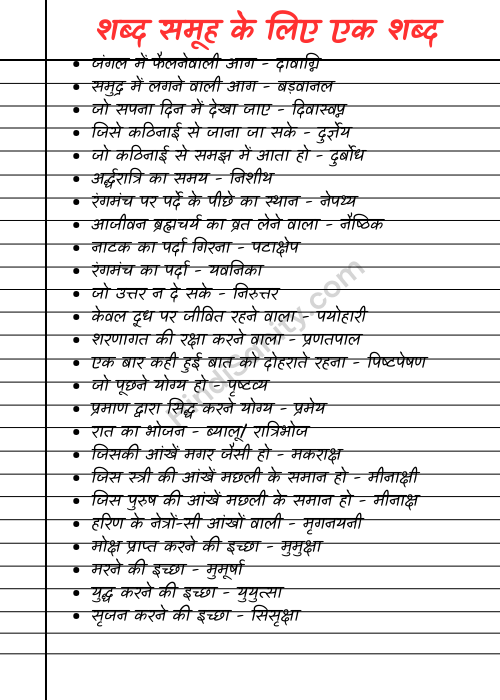 शब्द समूह के लिए एक शब्द
• जंगल में फैलनेवाली आग - दावाग्नि
• समुद्र में लगने वाली आग - बड़वानल
• जो सपना दिन में देखा जाए - दिवास्वप्न
• जिसे कठिनाई से जाना जा सके - दुर्ज्ञेय
• जो कठिनाई से समझ में आता हो - दुर्बोध
• अर्द्धरात्रि का समय - निशीथ
• रंगमंच पर पर्दे के पीछे का स्थान - नेपथ्य
• आजीवन ब्रह्मचर्य का व्रत लेने वाला - नैष्ठिक
• नाटक का पर्दा गिरना - पटाक्षेप
• रंगमंच का पर्दा - यवनिका
• जो उत्तर न दे सके - निरुत्तर
• केवल दूध पर जीवित रहने वाला - पयोहारी
• शरणागत की रक्षा करने वाला - प्रणतपाल
• एक बार कही हुई बात को दोहराते रहना - पिष्टपेषण
• जो पूछने योग्य हो - पृष्टव्य
• प्रमाण द्वारा सिद्ध करने योग्य - प्रमेय
• रात का भोजन - ब्यालू/ रात्रिभोज
• जिसकी आंखें मगर जैसी हो - मकराक्ष
• जिस स्त्री की आंखें मछली के समान हो - मीनाक्षी
• जिस पुरुष की आंखें मछली के समान हो - मीनाक्ष
• हरिण के नेत्रों-सी आंखों वाली - मृगनयनी
• मोक्ष प्राप्त करने की इच्छा - मुमुक्षा
• मरने की इच्छा - मुमूर्षा
• युद्ध करने की इच्छा - युयुत्सा
• सृजन करने की इच्छा - सिसृक्षा
HindiSanity.com